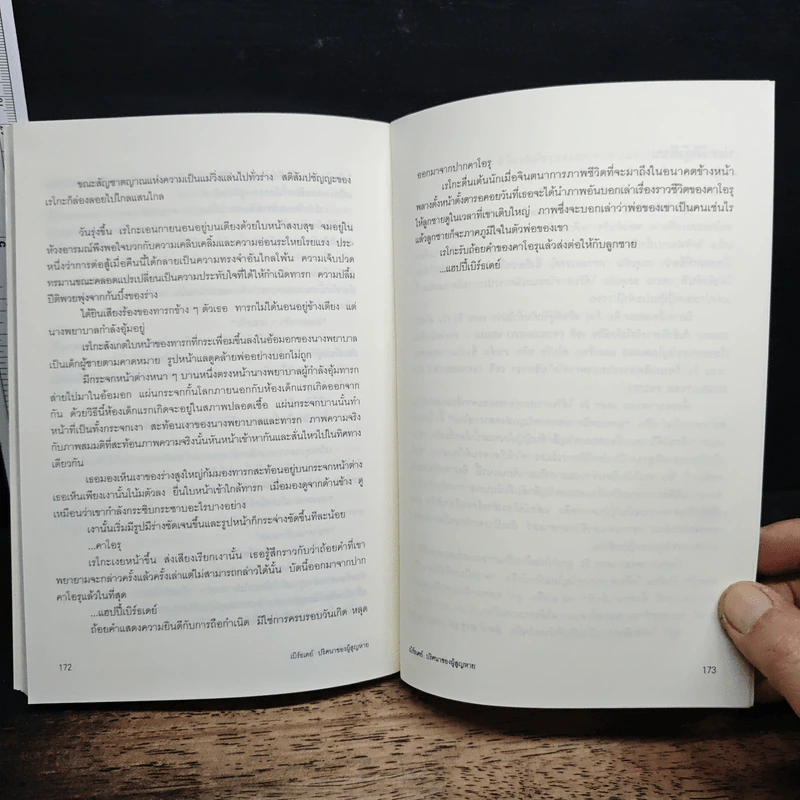 ขณะสัญชาตญาณแห่งความเป็นแม่วิ่งแล่นไปทั่วร่าง สติสัมปชัญญะของ
เรโกะก็ล่องลอยไปไกลแสนไกล
วันรุ่งขึ้น เรโกะเอนกายนอนอยู่บนเตียงด้วยใบหน้าสงบสุข จมอยู่ใน
ห้วงอารมณ์พึงพอใจบวกกับความเคลิบเคลิ้มและความอ่อนระโหยโรยแรง ประ-
หนึ่งว่าการต่อสู้เมื่อคืนนี้ได้กลายเป็นความทรงจำอันไกลโพ้น ความเจ็บปวด
ทรมานขณะคลอดแปรเปลี่ยนเป็นความประทับใจที่ได้ให้กำเนิดทารก ความปลื้ม
ปีติพวยพุ่งจากก้นบึ้งของร่าง
ได้ยินเสียงร้องของทารกข้าง ๆ ตัวเธอ ทารกไม่ได้นอนอยู่ข้างเตียง แต่
นางพยาบาลกำลังอุ้มอยู่
เรโกะสังเกตใบหน้าของทารกที่กระเพื่อมขึ้นลงในอ้อมอกของนางพยาบาล
เป็นเด็กผู้ชายตามคาดหมาย รูปหน้าแลดูคล้ายพ่ออย่างบอกไม่ถูก
มีกระจกหน้าต่างหนา ๆ บานหนึ่งตรงหน้านางพยาบาลผู้กำลังอุ้มทารก
ส่ายไปมาในอ้อมอก แผ่นกระจกกั้นโลกภายนอกกับห้องเด็กแรกเกิดออกจาก
กัน ด้วยวิธีนี้ห้องเด็กแรกเกิดจะอยู่ในสภาพปลอดเชื้อ แผ่นกระจกบานนั้นทำ
หน้าที่เป็นทั้งกระจกเงา สะท้อนเงาของนางพยาบาลและทารก ภาพความจริง
กับภาพสมมติที่สะท้อนภาพความจริงนั้นหันหน้าเข้าหากันและสั่นไหวไปในทิศทาง
เดียวกัน
เธอมองเห็นเงาของร่างสูงใหญ่ก้มมองทารกสะท้อนอยู่บนกระจกหน้าต่าง
เธอเห็นเพียงเงานั้นโน้มตัวลง ยื่นใบหน้าเข้าใกล้ทารก เมื่อมองดูจากด้านข้าง ดู
เหมือนว่าเขากำลังกระซิบกระซาบอะไรบางอย่าง
เงานั้นเริ่มมีรูปมีร่างชัดเจนขึ้นและรูปหน้าก็กระจ่างชัดขึ้นทีละน้อย
...คาโอรุ
เรโกะเงยหน้าขึ้น ส่งเสียงเรียกเงานั้น เธอรู้สึกราวกับว่าถ้อยคำที่เขา
พยายามจะกล่าวครั้งแล้วครั้งเล่าแต่ไม่สามารถกล่าวได้นั้น บัดนี้ออกมาจากปาก
คาโอรุแล้วในที่สุด
...แฮปปี้เบิร์ธเดย์
ถ้อยคำแสดงความยินดีกับการถือกำเนิด มิใช่การครบรอบวันเกิด หลุด
172
เบิร์ธเดย์ ปริศนาของผู้สูญหาย
ออกมาจากปากคาโอรุ
เรโกะตื่นเต้นนักเมื่อจินตนาการภาพชีวิตที่จะมาถึงในอนาคตข้างหน้า
พลางตั้งหน้าตั้งตารอคอยวันที่เธอจะได้นำภาพอันบอกเล่าเรื่องราวชีวิตของคาโอรุ
ให้ลูกชายดูในเวลาที่เขาเติบใหญ่ ภาพซึ่งจะบอกเล่าว่าพ่อของเขาเป็นคนเช่นไร
แล้วลูกชายก็จะภาคภูมิใจในตัวพ่อของเขา
เรโกะรับถ้อยคำของคาโอรุแล้วส่งต่อให้กับลูกชาย
...แฮปปี้เบิร์ธเดย์
เบิร์ธเดย์ ปริศนาของผู้สูญหาย
173